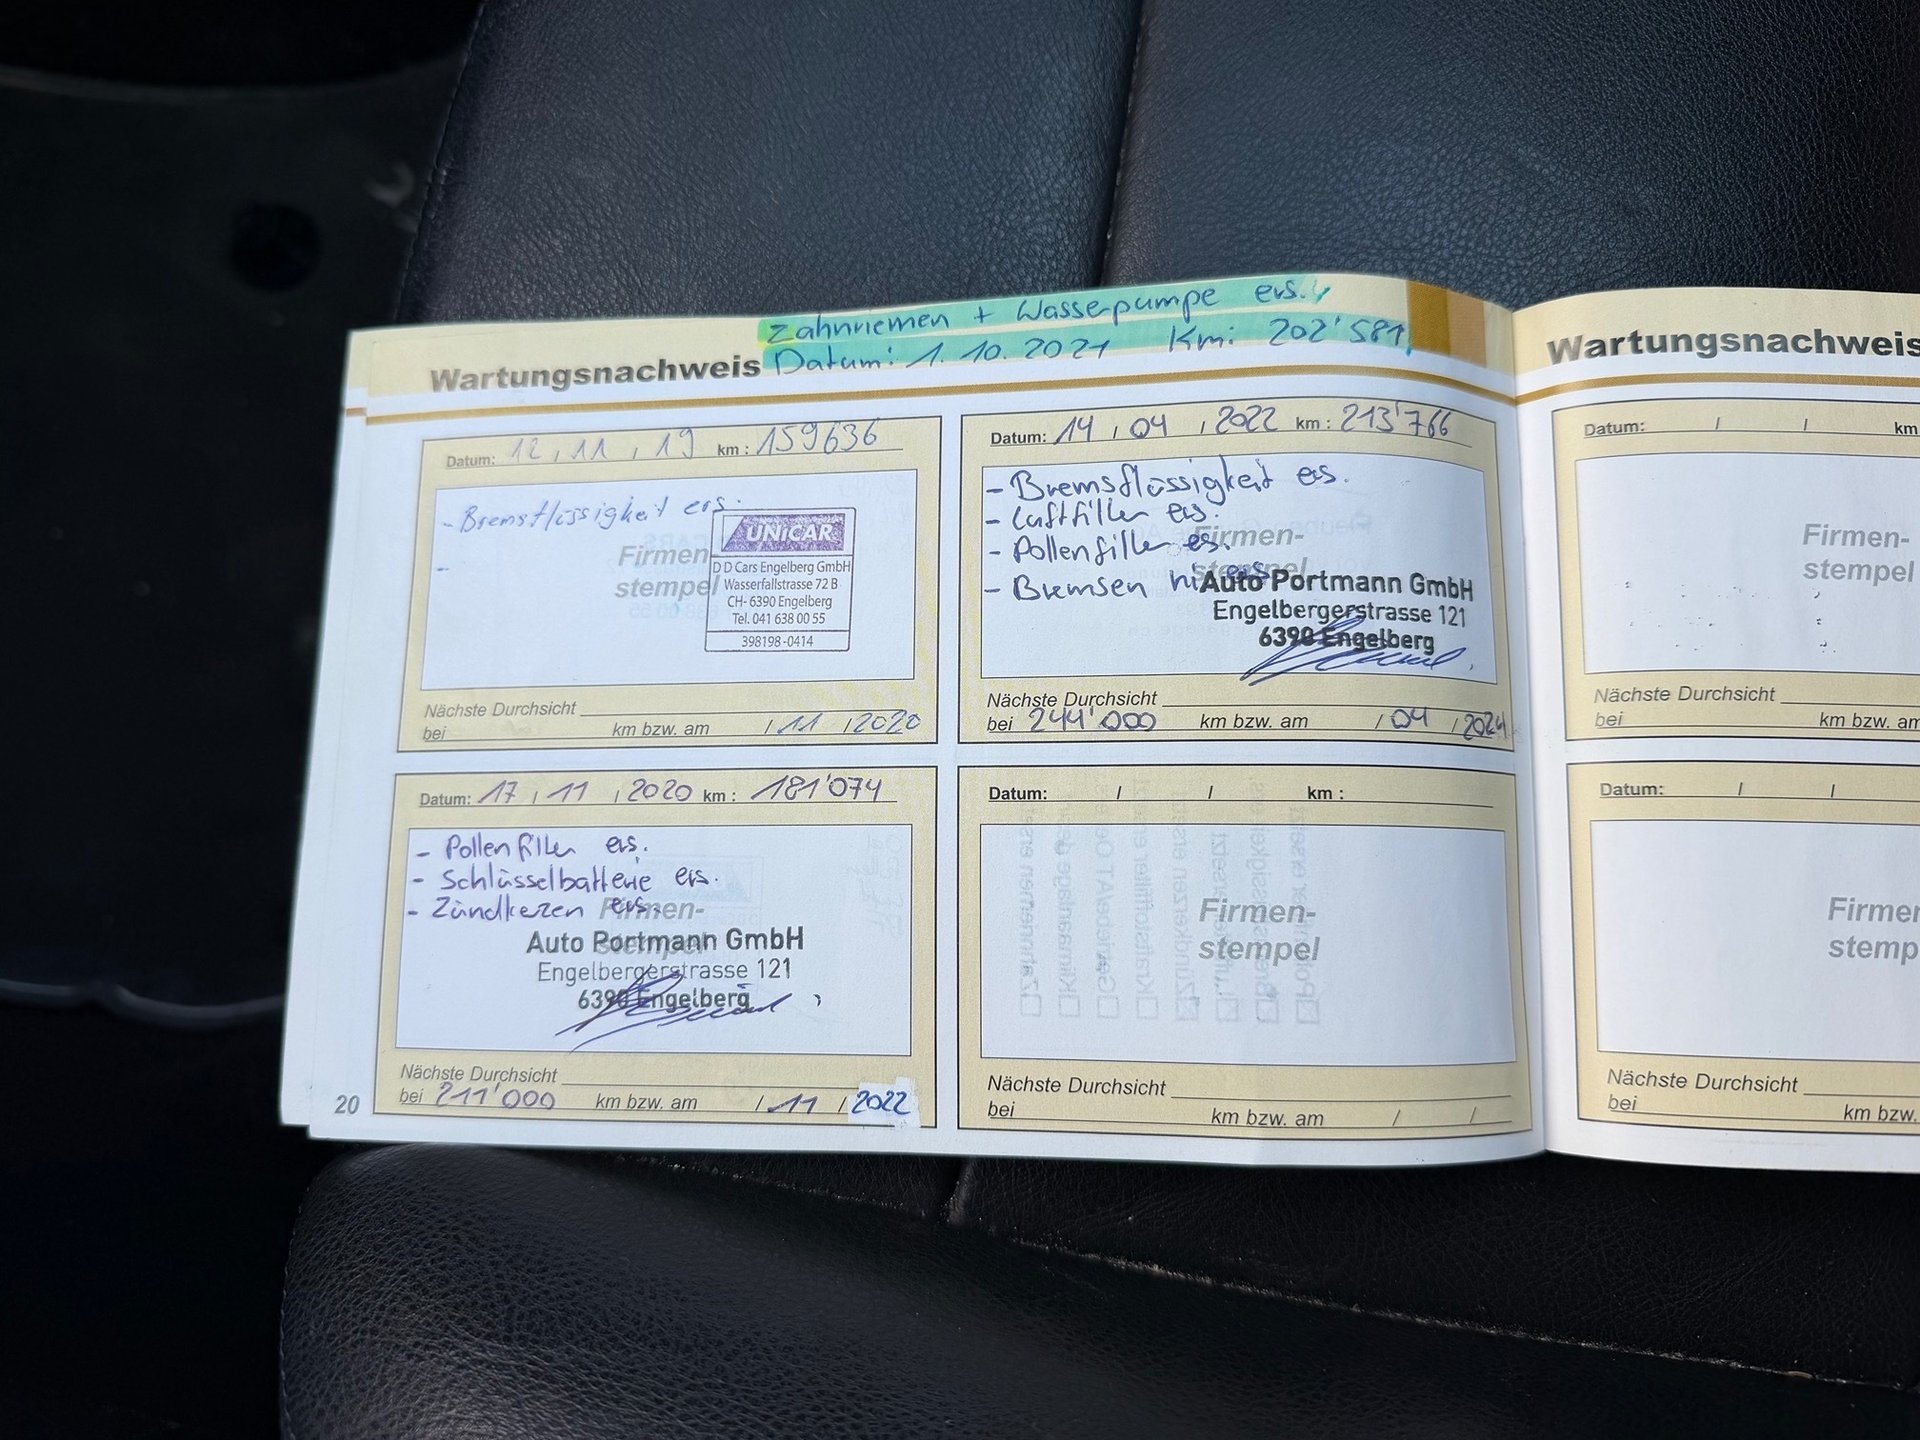 Zahnriemen + Wasserpumpe ers.
Datum: 1.10.2021 Km: 202'581
Wartungsnachweis
Datum: 12 / 11 / 19 km : 159636
- Bremsflüssigkeit ers.
-
Firmen-
stempel
UNICAR
D D Cars Engelberg GmbH
Wasserfallstrasse 72 B
CH- 6390 Engelberg
Tel. 041 638 00 55
398198-0414
Nächste Durchsicht
bei km bzw. am / 11 / 2020
Datum: 17 / 11 / 2020 km : 181'074
- Pollenfilter ers.
- Schlüsselbatterie ers.
- Zündkerzen ers.
Firmen-
stempel
Auto Portmann GmbH
Engelbergerstrasse 121
6390 Engelberg
Nächste Durchsicht
bei 211'000 km bzw. am / 11 / 2022
20
Datum: 14 / 04 / 2022 km : 213'766
- Bremsflüssigkeit ers.
- Luftfilter ers.
- Pollenfilter ers.
- Bremsen ers.
Firmen-
stempel
Auto Portmann GmbH
Engelbergerstrasse 121
6390 Engelberg
Nächste Durchsicht
bei 244'000 km bzw. am / 04 / 2024
Datum: / / km :
Firmen-
stempel
Nächste Durchsicht
bei km bzw. am / /
Wartungsnachweis
Datum: / / km
Firmen-
stempel
Nächste Durchsicht
bei km bzw. am
Datum: / /
Firmen-
stemp
Nächste Durchsicht
bei km bzw.